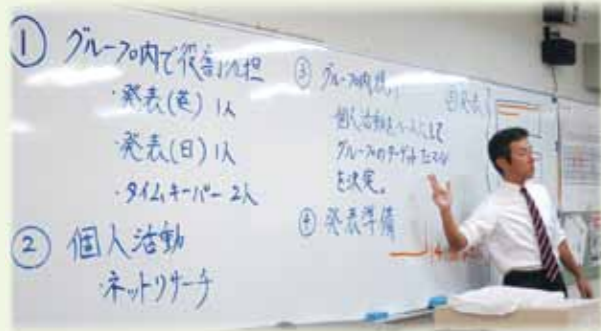 ① グループ内で役割分担
・発表(英) 1人
・発表(日) 1人
・タイムキーパー 2人
② 個人活動
・ネットリサーチ
③ グループ内
個人活動をベースにして
グループのターゲット
を決定。
④ 発表準備
⑤ 発表